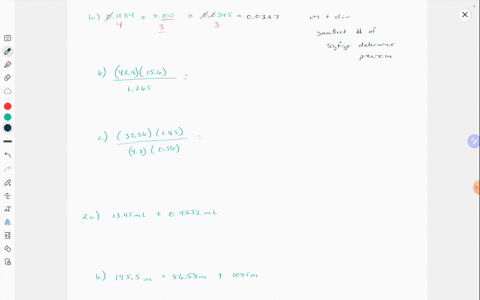 1a) 0.1884 x 2.00 x 0.0345 = 0.0327
4 3 3
m + div
smallest # of
sigfigs determines
precision
b) (42.4)(15.6) =
1.265
c) (35.56)(1.45) =
(4.3)(0.56)
2a) 13.45 mL + 0.4532 mL
b) 145.5 m + 56.58m + 1045m